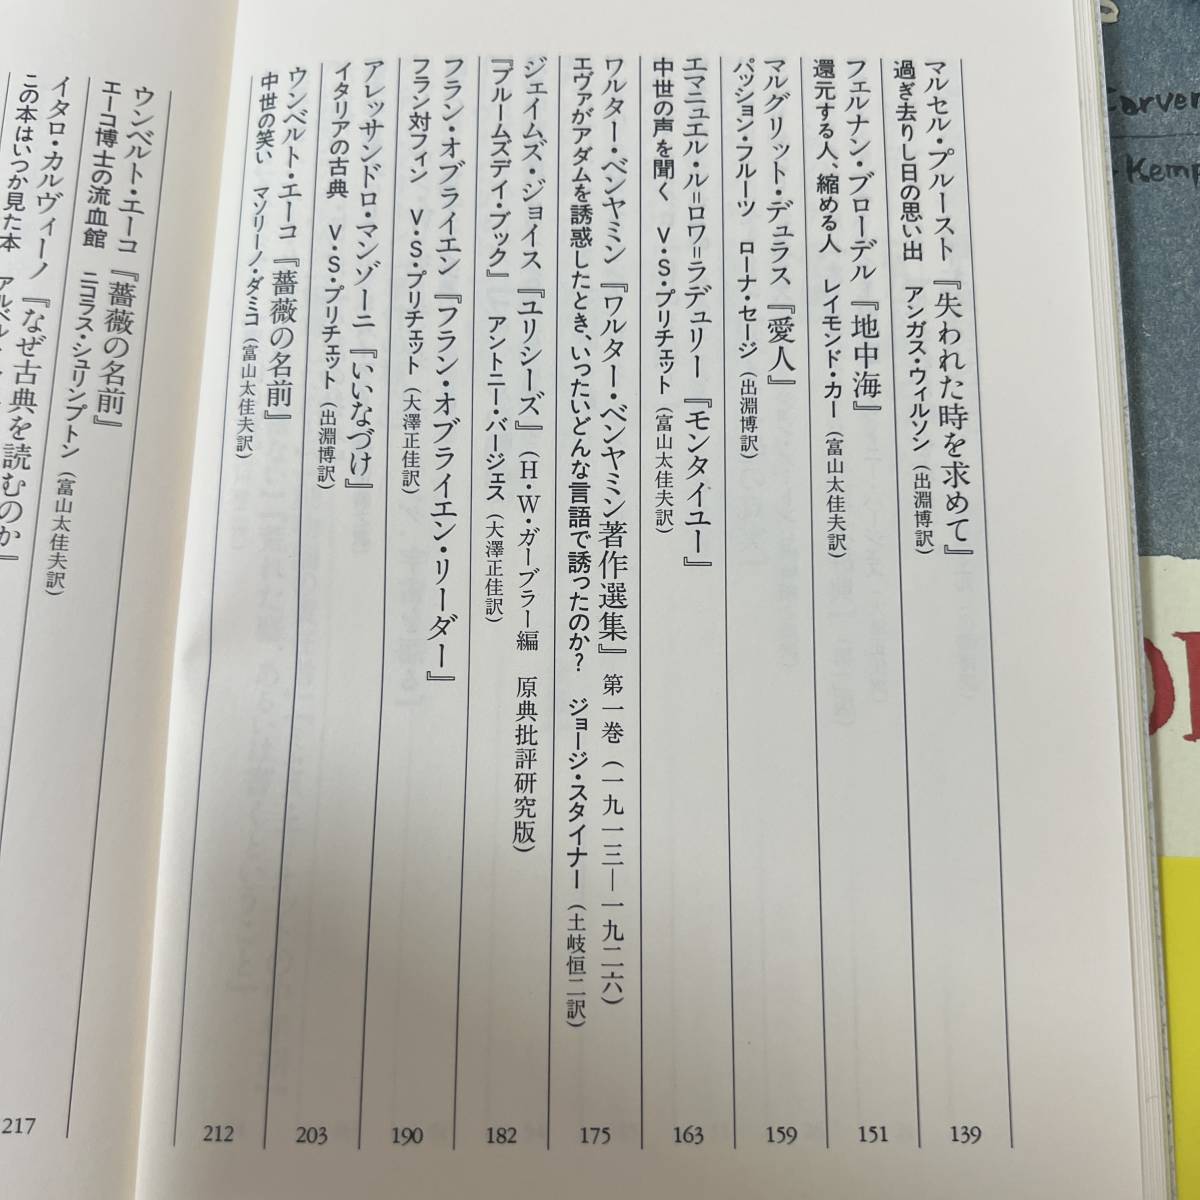 マルセル・プルースト『失われた時を求めて』
過ぎ去りし日の思い出　アンガス・ウィルソン（出淵博訳）
139
フェルナン・ブローデル『地中海』
還元する人、縮める人　レイモンド・カー（富山太佳夫訳）
151
マルグリット・デュラス『愛人』
パッション・フルーツ　ローナ・セージ（出淵博訳）
159
エマニュエル・ル＝ロワ＝ラデュリー『モンタイユー』
中世の声を聞く　V・S・プリチェット（富山太佳夫訳）
163
ワルター・ベンヤミン『ワルター・ベンヤミン著作選集』第一巻（一九一三―一九二六）
エヴァがアダムを誘惑したとき、いったいどんな言語で誘ったのか？　ジョージ・スタイナー（土岐恒二訳）
175
ジェイムズ・ジョイス『ユリシーズ』（H・W・ガーブラー編　原典批評研究版）
『ブルームズデイ・ブック』　アントニー・バージェス（大澤正佳訳）
182
フラン・オブライエン『フラン・オブライエン・リーダー』
フラン対フィン　V・S・プリチェット（大澤正佳訳）
190
アレッサンドロ・マンゾーニ『いいなづけ』
イタリアの古典　V・S・プリチェット（出淵博訳）
203
ウンベルト・エーコ『薔薇の名前』
中世の笑い　マソリーノ・ダミコ（富山太佳夫訳）
212
ウンベルト・エーコ『薔薇の名前』
エーコ博士の流血館　ニコラス・シュリンプトン（富山太佳夫訳）
217
イタロ・カルヴィーノ『なぜ古典を読むのか』
この本はいつか見た本
Carver
Kemp